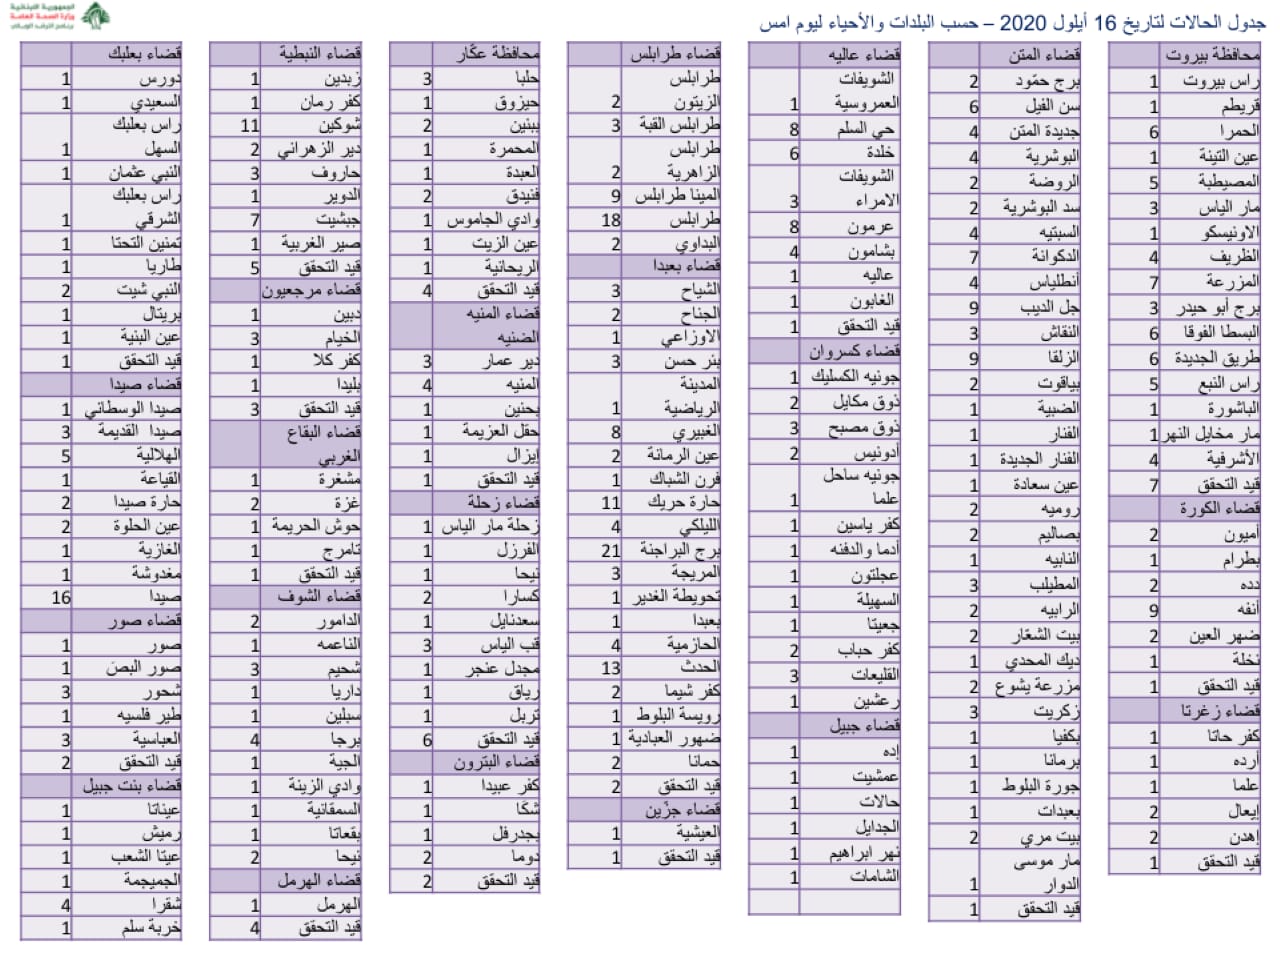 الجمهورية اللبنانية
وزارة الصحة العامة
برنامج الترصد الوبائي
جدول الحالات لتاريخ 16 أيلول 2020 – حسب البلدات والأحياء ليوم امس
محافظة بيروت
راس بيروت 1
قريطم 1
الحمرا 6
عين التينة 1
المصيطبة 5
مار الياس 3
الاونيسكو 1
الظريف 4
المزرعة 7
برج أبو حيدر 3
البسطا الفوقا 6
طريق الجديدة 6
راس النبع 5
الباشورة 1
مار مخايل النهر 1
الأشرفية 4
قيد التحقق 7
قضاء الكورة
أميون 2
بطرام 1
دده 2
أنفه 9
ضهر العين 2
نخلة 1
قيد التحقق 1
قضاء زغرتا
كفر حاتا 1
أرده 1
علما 1
إيعال 2
إهدن 2
قيد التحقق 1
قضاء المتن
برج حمّود 2
سن الفيل 6
جديدة المتن 4
البوشرية 4
الروضة 2
سد البوشرية 2
السبتيه 4
الدكوانة 7
أنطلياس 4
جل الديب 9
النقاش 3
الزلقا 9
بياقوت 2
الضبية 1
الفنار 1
الفنار الجديدة 1
عين سعادة 1
روميه 2
بصاليم 2
النابيه 1
المطيلب 3
الرابيه 2
بيت الشعّار 2
ديك المحدي 1
مزرعة يشوع 2
زكريت 3
بكفيا 1
برمانا 1
جورة البلوط 1
بعبدات 1
بيت مري 2
مار موسى
الدوار 1
قيد التحقق 1
قضاء عاليه
الشويفات
العمروسية 1
حي السلم 8
خلدة 6
الشويفات
الامراء 3
عرمون 8
بشامون 4
عاليه 1
الغابون 1
قيد التحقق 1
قضاء كسروان
جونيه الكسليك 1
ذوق مكايل 2
ذوق مصبح 3
أدونيس 2
جونيه ساحل
علما 1
كفر ياسين 1
أدما والدفنه 1
عجلتون 1
السهيلة 1
جعيتا 1
كفر حباب 2
القليعات 3
رعشين 1
قضاء جبيل
إده 1
عمشيت 1
حالات 1
الجدايل 1
نهر ابراهيم 1
الشامات 1
قضاء طرابلس
طرابلس
الزيتون 2
طرابلس القبة 3
طرابلس
الزاهرية 2
المينا طرابلس 9
طرابلس 18
البداوي 2
قضاء بعبدا
الشياح 3
الجناح 2
الاوزاعي 1
بئر حسن 3
المدينة
الرياضية 1
الغبيري 8
عين الرمانة 2
فرن الشباك 1
حارة حريك 11
الليلكي 4
برج البراجنة 21
المريجة 3
تحويطة الغدير 1
بعبدا 1
الحازمية 4
الحدث 13
كفر شيما 2
رويسة البلوط 1
ضهور العبادية 1
حمانا 2
قيد التحقق 2
قضاء جزّين
العيشية 1
قيد التحقق 1
محافظة عكّار
حلبا 3
حيزوق 1
ببنين 2
المحمرة 1
العبدة 1
فنيدق 2
وادي الجاموس 1
عين الزيت 1
الريحانية 1
قيد التحقق 4
قضاء المنيه
الضنيه
دير عمار 3
المنيه 4
بحنين 1
حقل العزيمة 1
إيزال 1
قيد التحقق 1
قضاء زحلة
زحلة مار الياس 1
الفرزل 1
نيحا 1
كسارا 2
سعدنايل 1
قب الياس 3
مجدل عنجر 1
رياق 1
تربل 1
قيد التحقق 6
قضاء البترون
كفر عبيدا 1
شكّا 1
بجدرفل 1
دوما 2
قيد التحقق 2
قضاء النبطية
زبدين 1
كفر رمان 1
شوكين 11
دير الزهراني 2
حاروف 3
الدوير 1
جبشيت 7
صير الغربية 1
قيد التحقق 5
قضاء مرجعيون
دبين 1
الخيام 3
كفر كلا 1
بليدا 1
قيد التحقق 3
قضاء البقاع
الغربي
مشغرة 1
غزة 2
حوش الحريمة 1
تامرج 1
قيد التحقق 1
قضاء الشوف
الدامور 2
الناعمه 1
شحيم 3
داريا 1
سبلين 1
برجا 4
الجية 1
وادي الزينة 1
السمقانية 1
بقعاتا 1
نيحا 2
قضاء الهرمل
الهرمل 1
قيد التحقق 4
قضاء بعلبك
دورس 1
السعيدي 1
راس بعلبك
السهل 1
النبي عثمان 1
راس بعلبك
الشرقي 1
تمنين التحتا 1
طاريا 1
النبي شيت 2
بريتال 1
عين البنية 1
قيد التحقق 1
قضاء صيدا
صيدا الوسطاني 1
صيدا القديمة 3
الهلالية 5
القياعة 1
حارة صيدا 2
عين الحلوة 2
الغازية 1
مغدوشة 1
صيدا 16
قضاء صور
صور 1
صور البص 1
شحور 3
طير فلسيه 1
العباسية 3
قيد التحقق 2
قضاء بنت جبيل
عيناتا 1
رميش 1
عيتا الشعب 1
الجميجمة 1
شقرا 4
خربة سلم 1